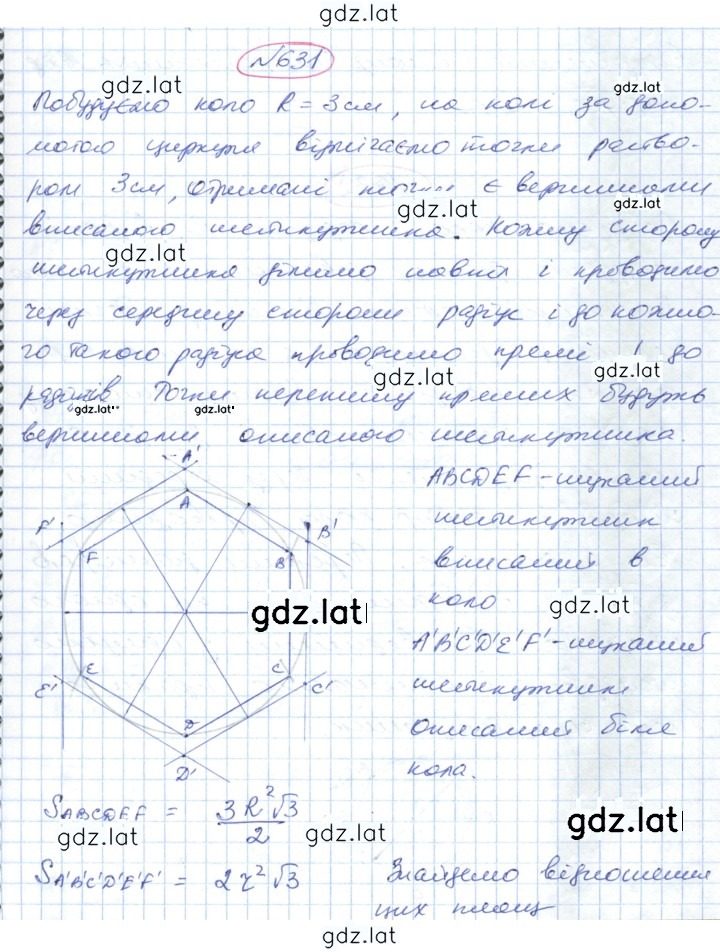 gdz.lat
№631
gdz.lat gdz.lat
Побудуємо коло R = 3 см, на колі за допо-
могою циркуля відмічаємо точки раство-
ром 3 см, отримані точки є вершинами
gdz.lat gdz.lat
вписаного шестикутника. Кожну сторону
gdz.lat
шестикутника ділимо навпіл і проводимо
через середину сторони радіус і до кожно-
го такого радіуса проводимо прямі ⊥ до
gdz.lat gdz.lat
радіусів Точки перетину прямих будуть
gdz.lat gdz.lat
вершинами описаного шестикутника.
A'
A
F'
B'
F
B
E
C
E'
C'
D
D'
ABCDEF - шуканий
шестикутник
вписаний в
коло
gdz.lat gdz.lat
A'B'C'D'E'F' - шуканий
шестикутник
описаний біля
кола.
S ABCDEF = 3R²√3 / 2
gdz.lat gdz.lat gdz.lat
S A'B'C'D'E'F' = 2r²√3
Знайдемо відношення
цих площ
gdz.lat